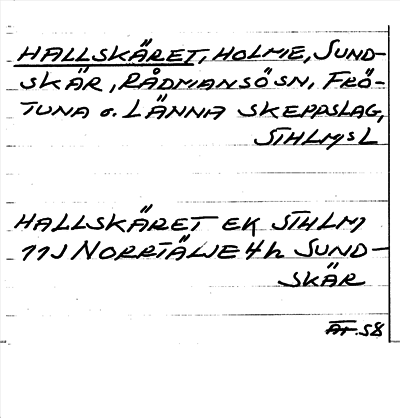 HALLSKÄRET, HOLME, SUND-
SKÄR, RÅDMANSÖ SN, FRÖ-
TUNA o. LÄNNA SKEPPSLAG,
STHLMS L
HALLSKÄRET EK STHLM
11J NORRTÄLJE 4h SUND-
SKÄR
ÄF. 58